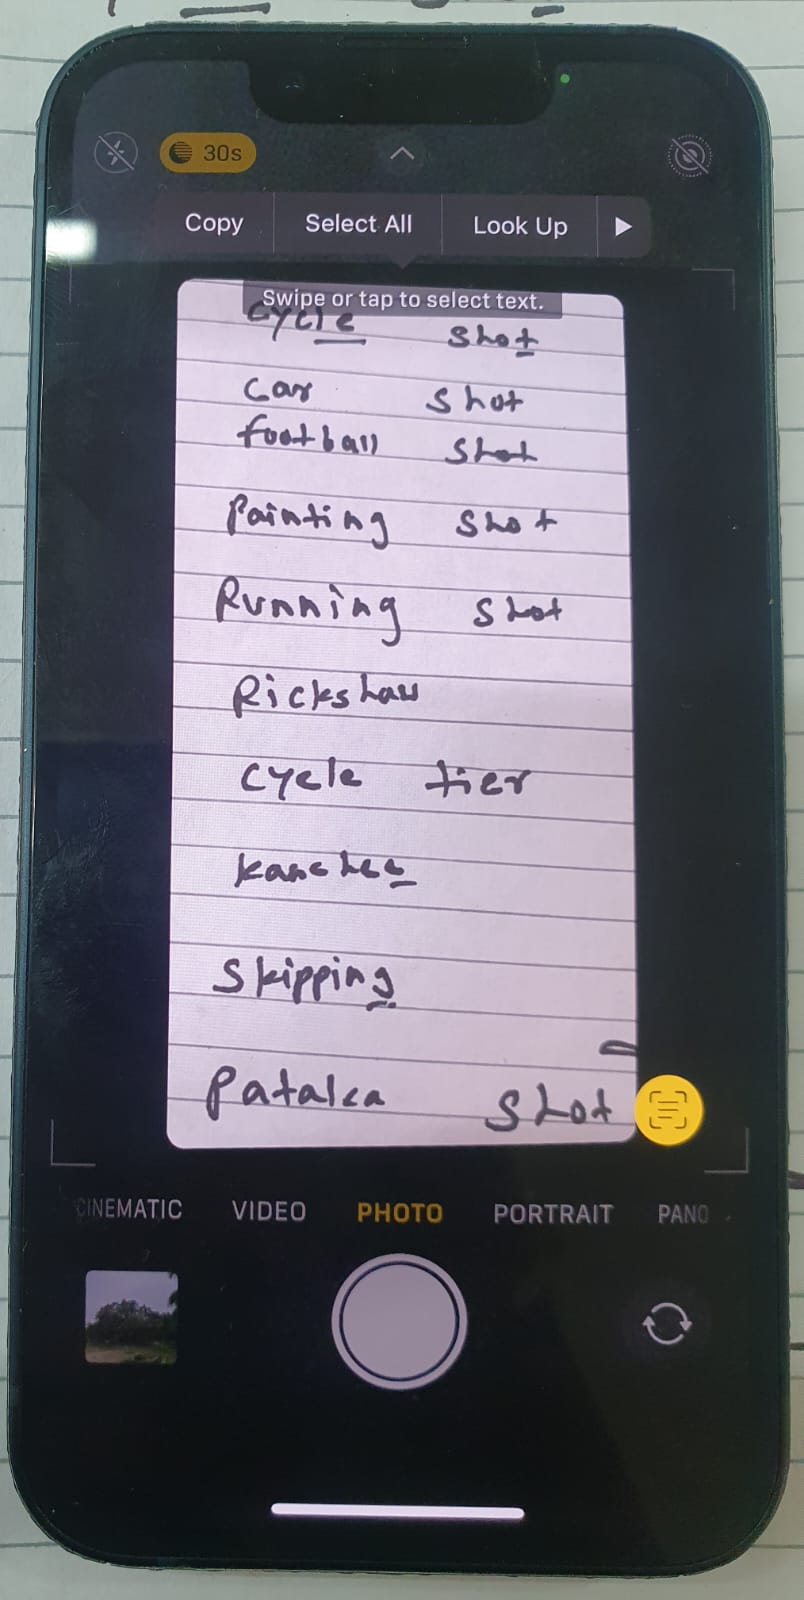 30s
Copy Select All Look Up
Swipe or tap to select text.
Cycle Shot
Car Shot
football Shot
Painting Shot
Running Shot
Rickshaw
Cycle tier
kanchee
Skipping
Pataka Shot
CINEMATIC VIDEO PHOTO PORTRAIT PANO